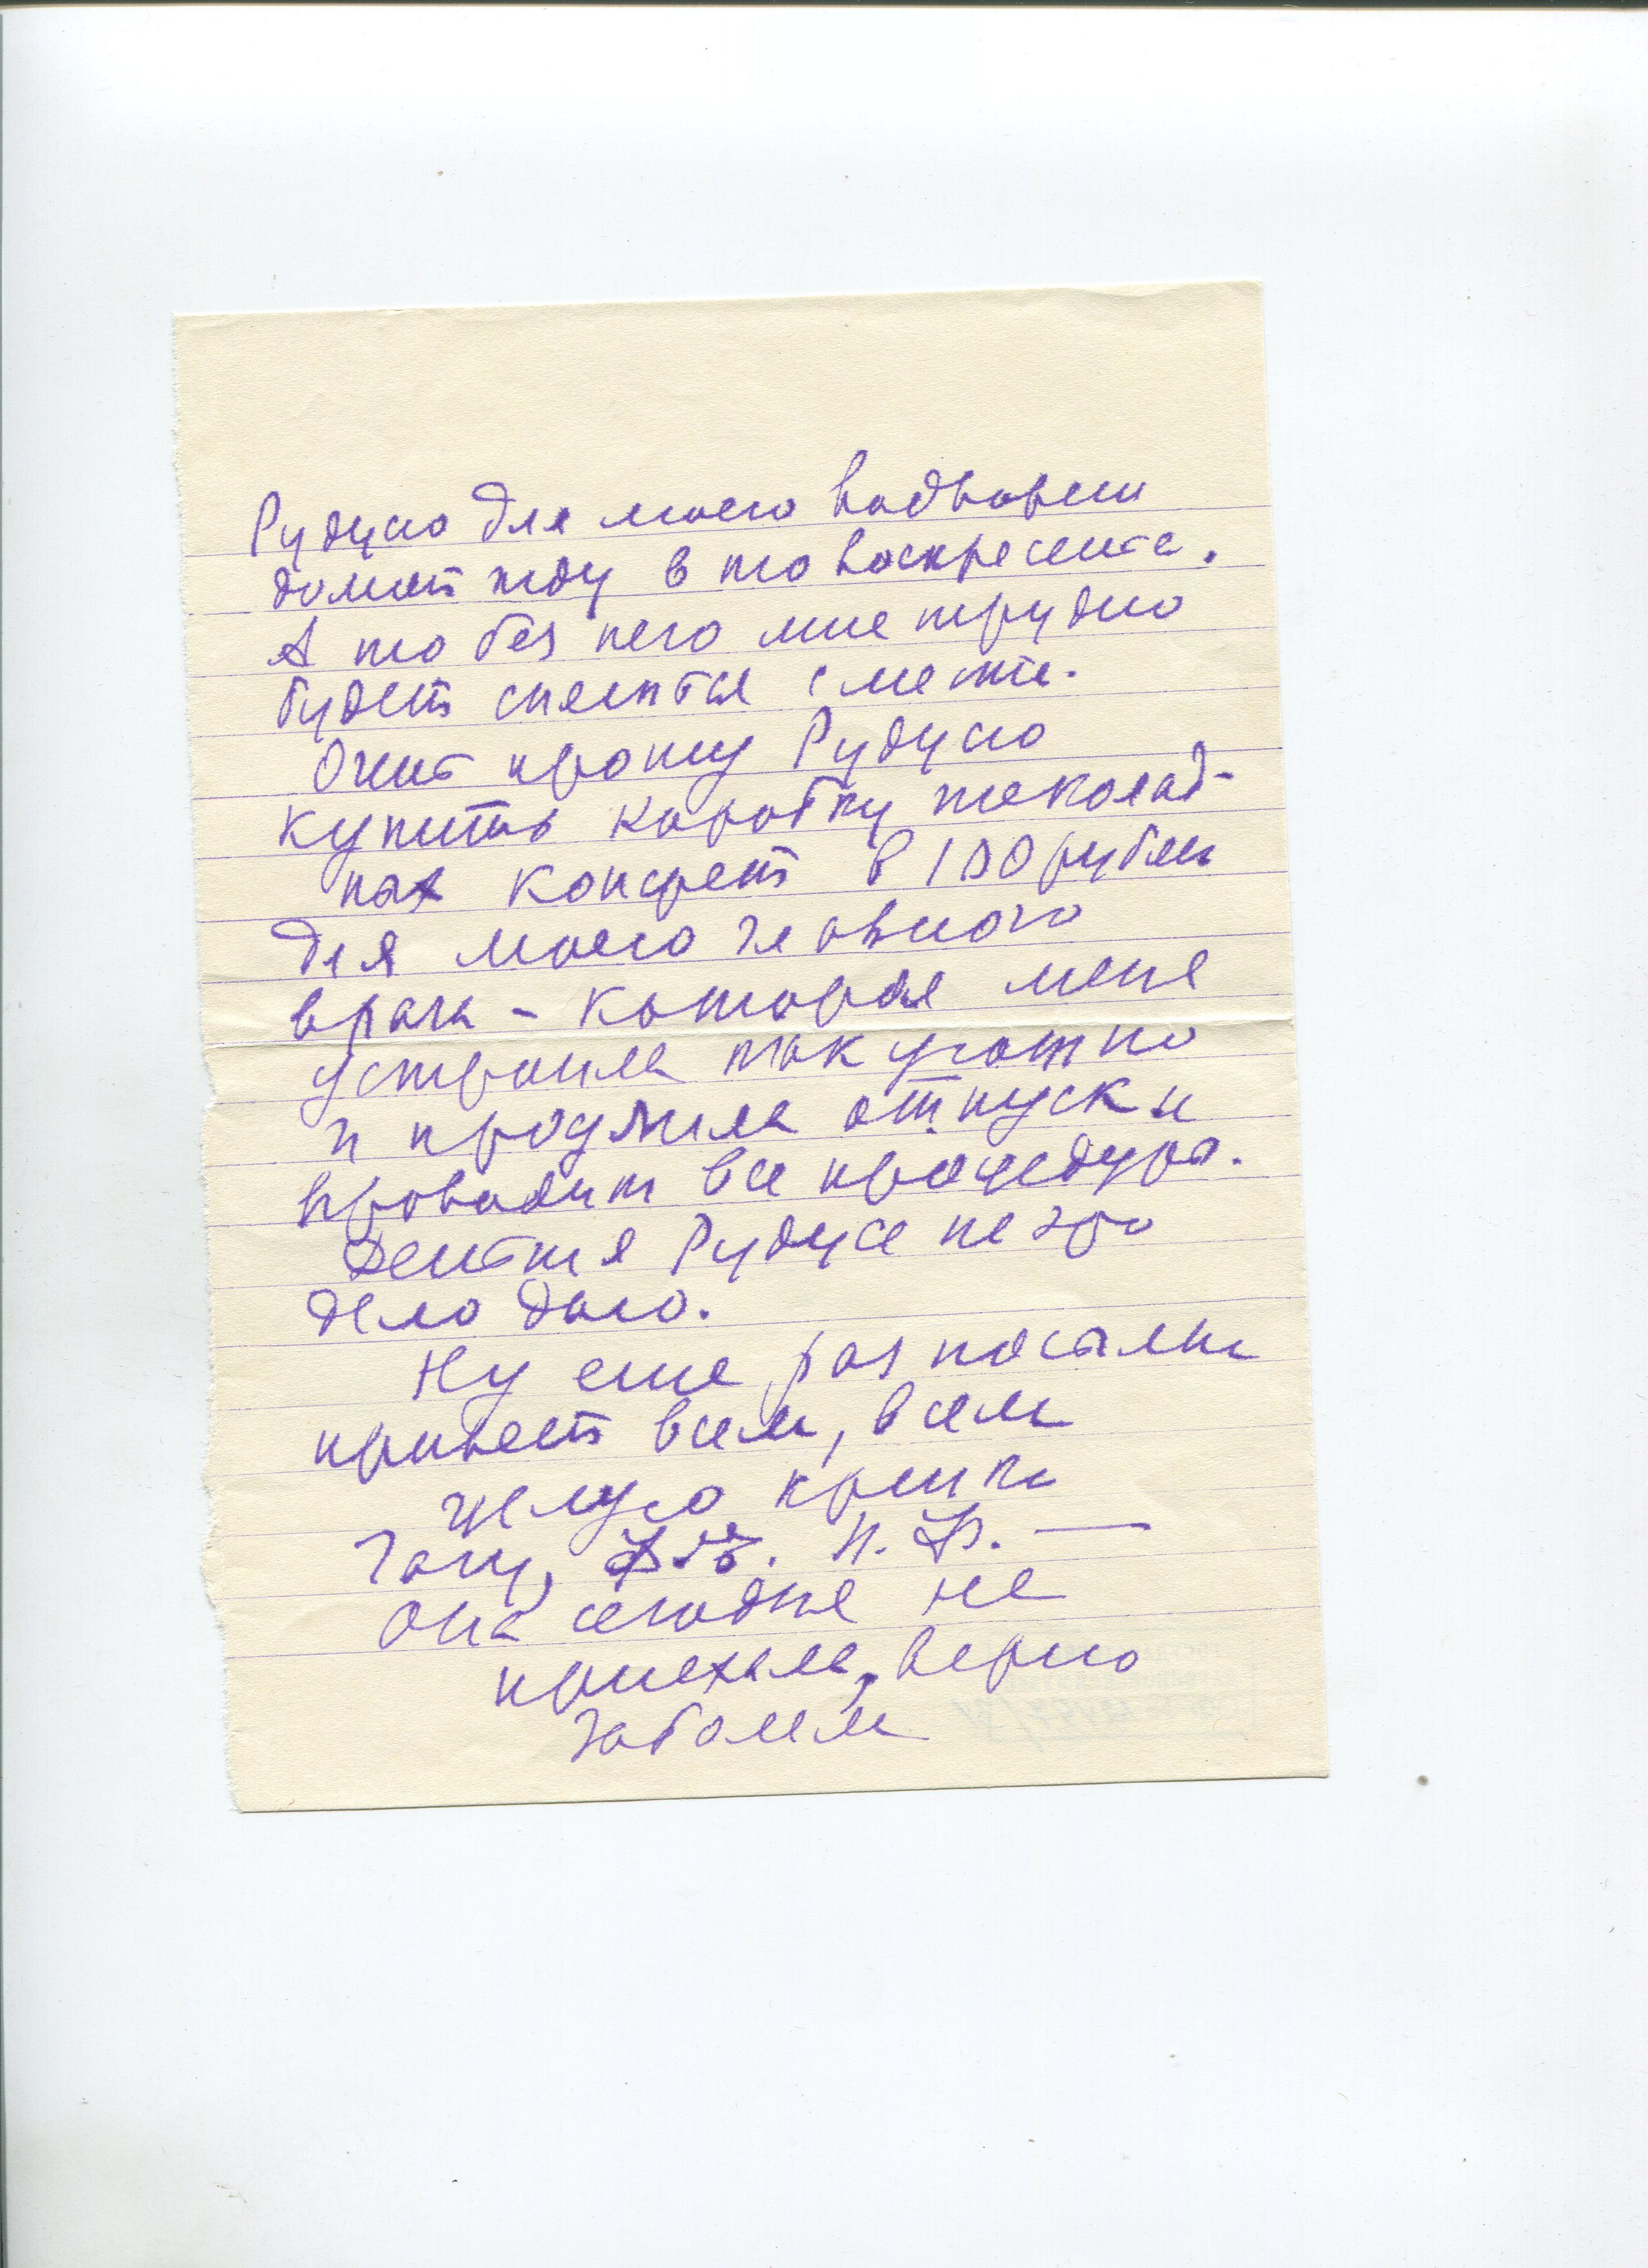 Рудусю для моего водворения
домой жду в то воскресенье.
А то без него мне трудно
будет с места.
Очень прошу Рудусю
купить коробку шоколад-
ных конфет в 100 рублей
для моего главного
врача - которая меня
устроила так уютно
и продлила отпуск и
проводит все процедуры.
Деньги я Рудусе на это
дело даю.
Ну еще раз посылаю
привет всем, всем
Целую крепко
Н. Ф. —
Она сегодня не
приехала, верно
заболела